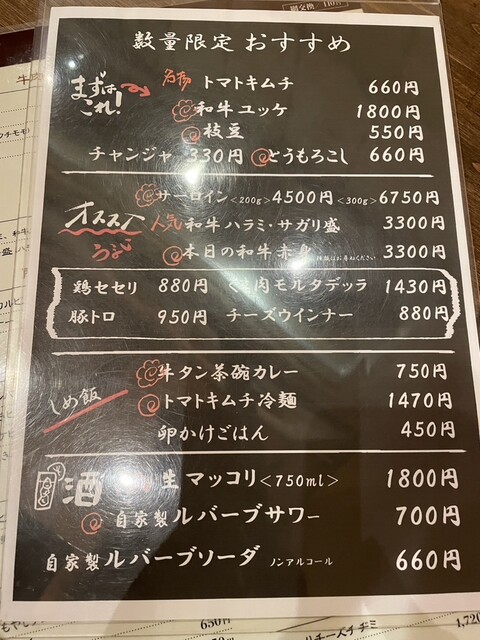 数量限定 おすすめ
まずはこれ!
名物 トマトキムチ 660円
和牛ユッケ 1800円
枝豆 550円
チャンジャ 330円 とうもろこし 660円
オススメ
サーロイン <200g> 4500円 <300g> 6750円
人気 和牛ハラミ・サガリ盛 3300円
本日の和牛赤身 3300円
鶏セセリ 880円 肉モルタデッラ 1430円
豚トロ 950円 チーズウインナー 880円
しめ飯
牛タン茶碗カレー 750円
トマトキムチ冷麺 1470円
卵かけごはん 450円
酒
生 マッコリ <750ml> 1800円
自家製 ルバーブサワー 700円
自家製 ルバーブソーダ ノンアルコール 660円